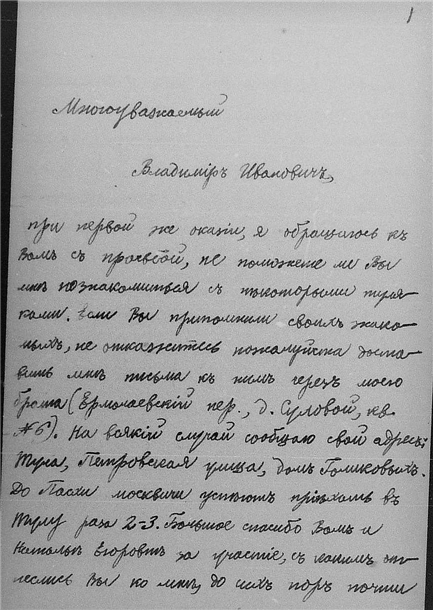 1
Многоуважаемый
Владиміръ Ивановичъ,
при первой же оказіи, я обращаюсь къ
Вамъ съ просьбой, не поможете ли Вы
мнѣ познакомиться съ нѣкоторыми туля-
ками. Если Вы припомнили своихъ знако-
мыхъ, не откажитесь пожалуйста доста-
вить мнѣ письма къ нимъ черезъ моего
брата (Ермолаевскій пер., д. Сусловой, кв.
№ 6). На всякій случай сообщаю свой адресъ:
Тула, Петровская улица, домъ Голиковыхъ.
До Пасхи москвичи успѣютъ пріѣхать въ
Тулу раза 2-3. Большое спасибо Вамъ и
Натальѣ Егоровнѣ за участіе, съ какимъ от-
неслись Вы ко мнѣ, до сихъ поръ почти